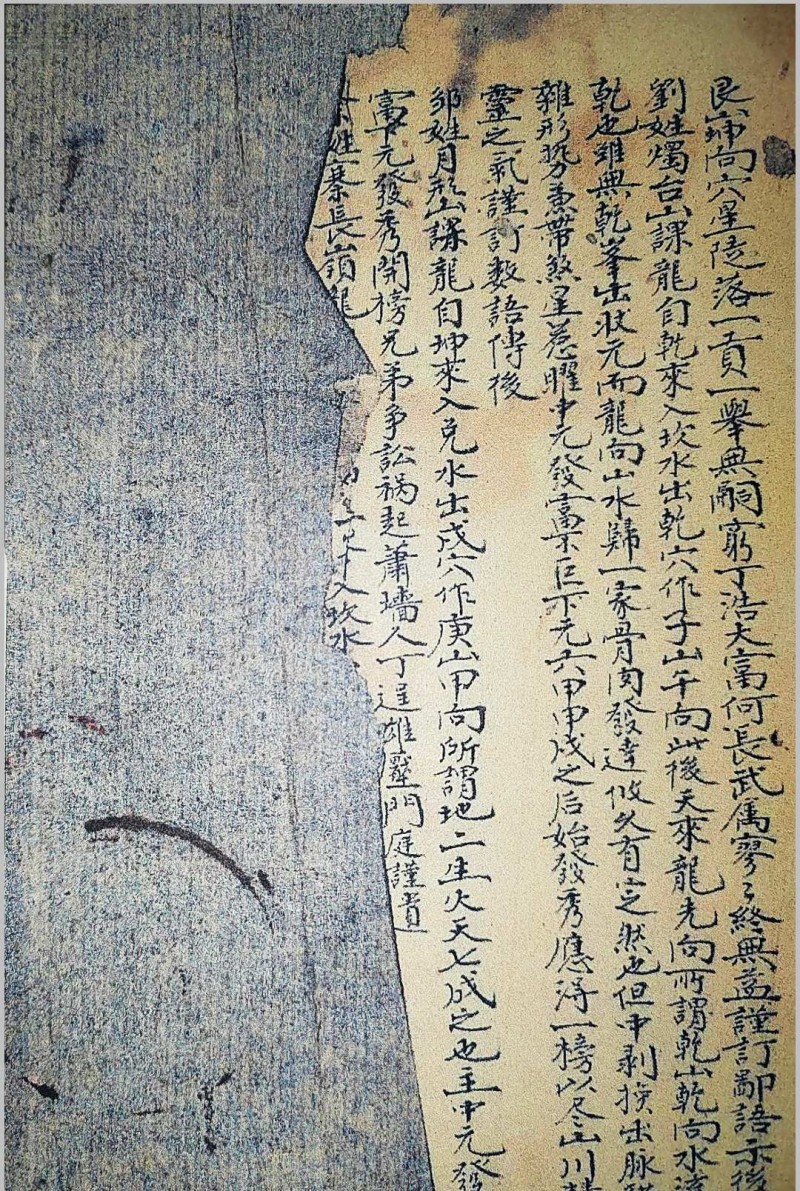 艮山坤向穴星陡落一貢一舉無嗣窮丁浩大富何長武屬寥々終無益謹訂鄙語示後
劉姓燭台山課龍自乾來入坎水出乾穴作子山午向此後天來龍先向所謂乾山乾向水流
乾也雖無乾峯出狀元而龍向山水歸一家骨肉發達攸久有定然也但中剥換出脉
雜形势兼帶煞星惹曜中元發富不巨下元六甲甲戌之后始發秀應得一榜以尽山川
靈之氣謹訂数語傳後
邹姓月形山課龍自坤來入兑水出戌穴作庚山甲向所謂地二生火天七成之也主中元發
富下元發秀開榜兄弟争訟禍起蕭墻久丁逞雄壓門庭謹責
姓寨長嶺龍 入坎水